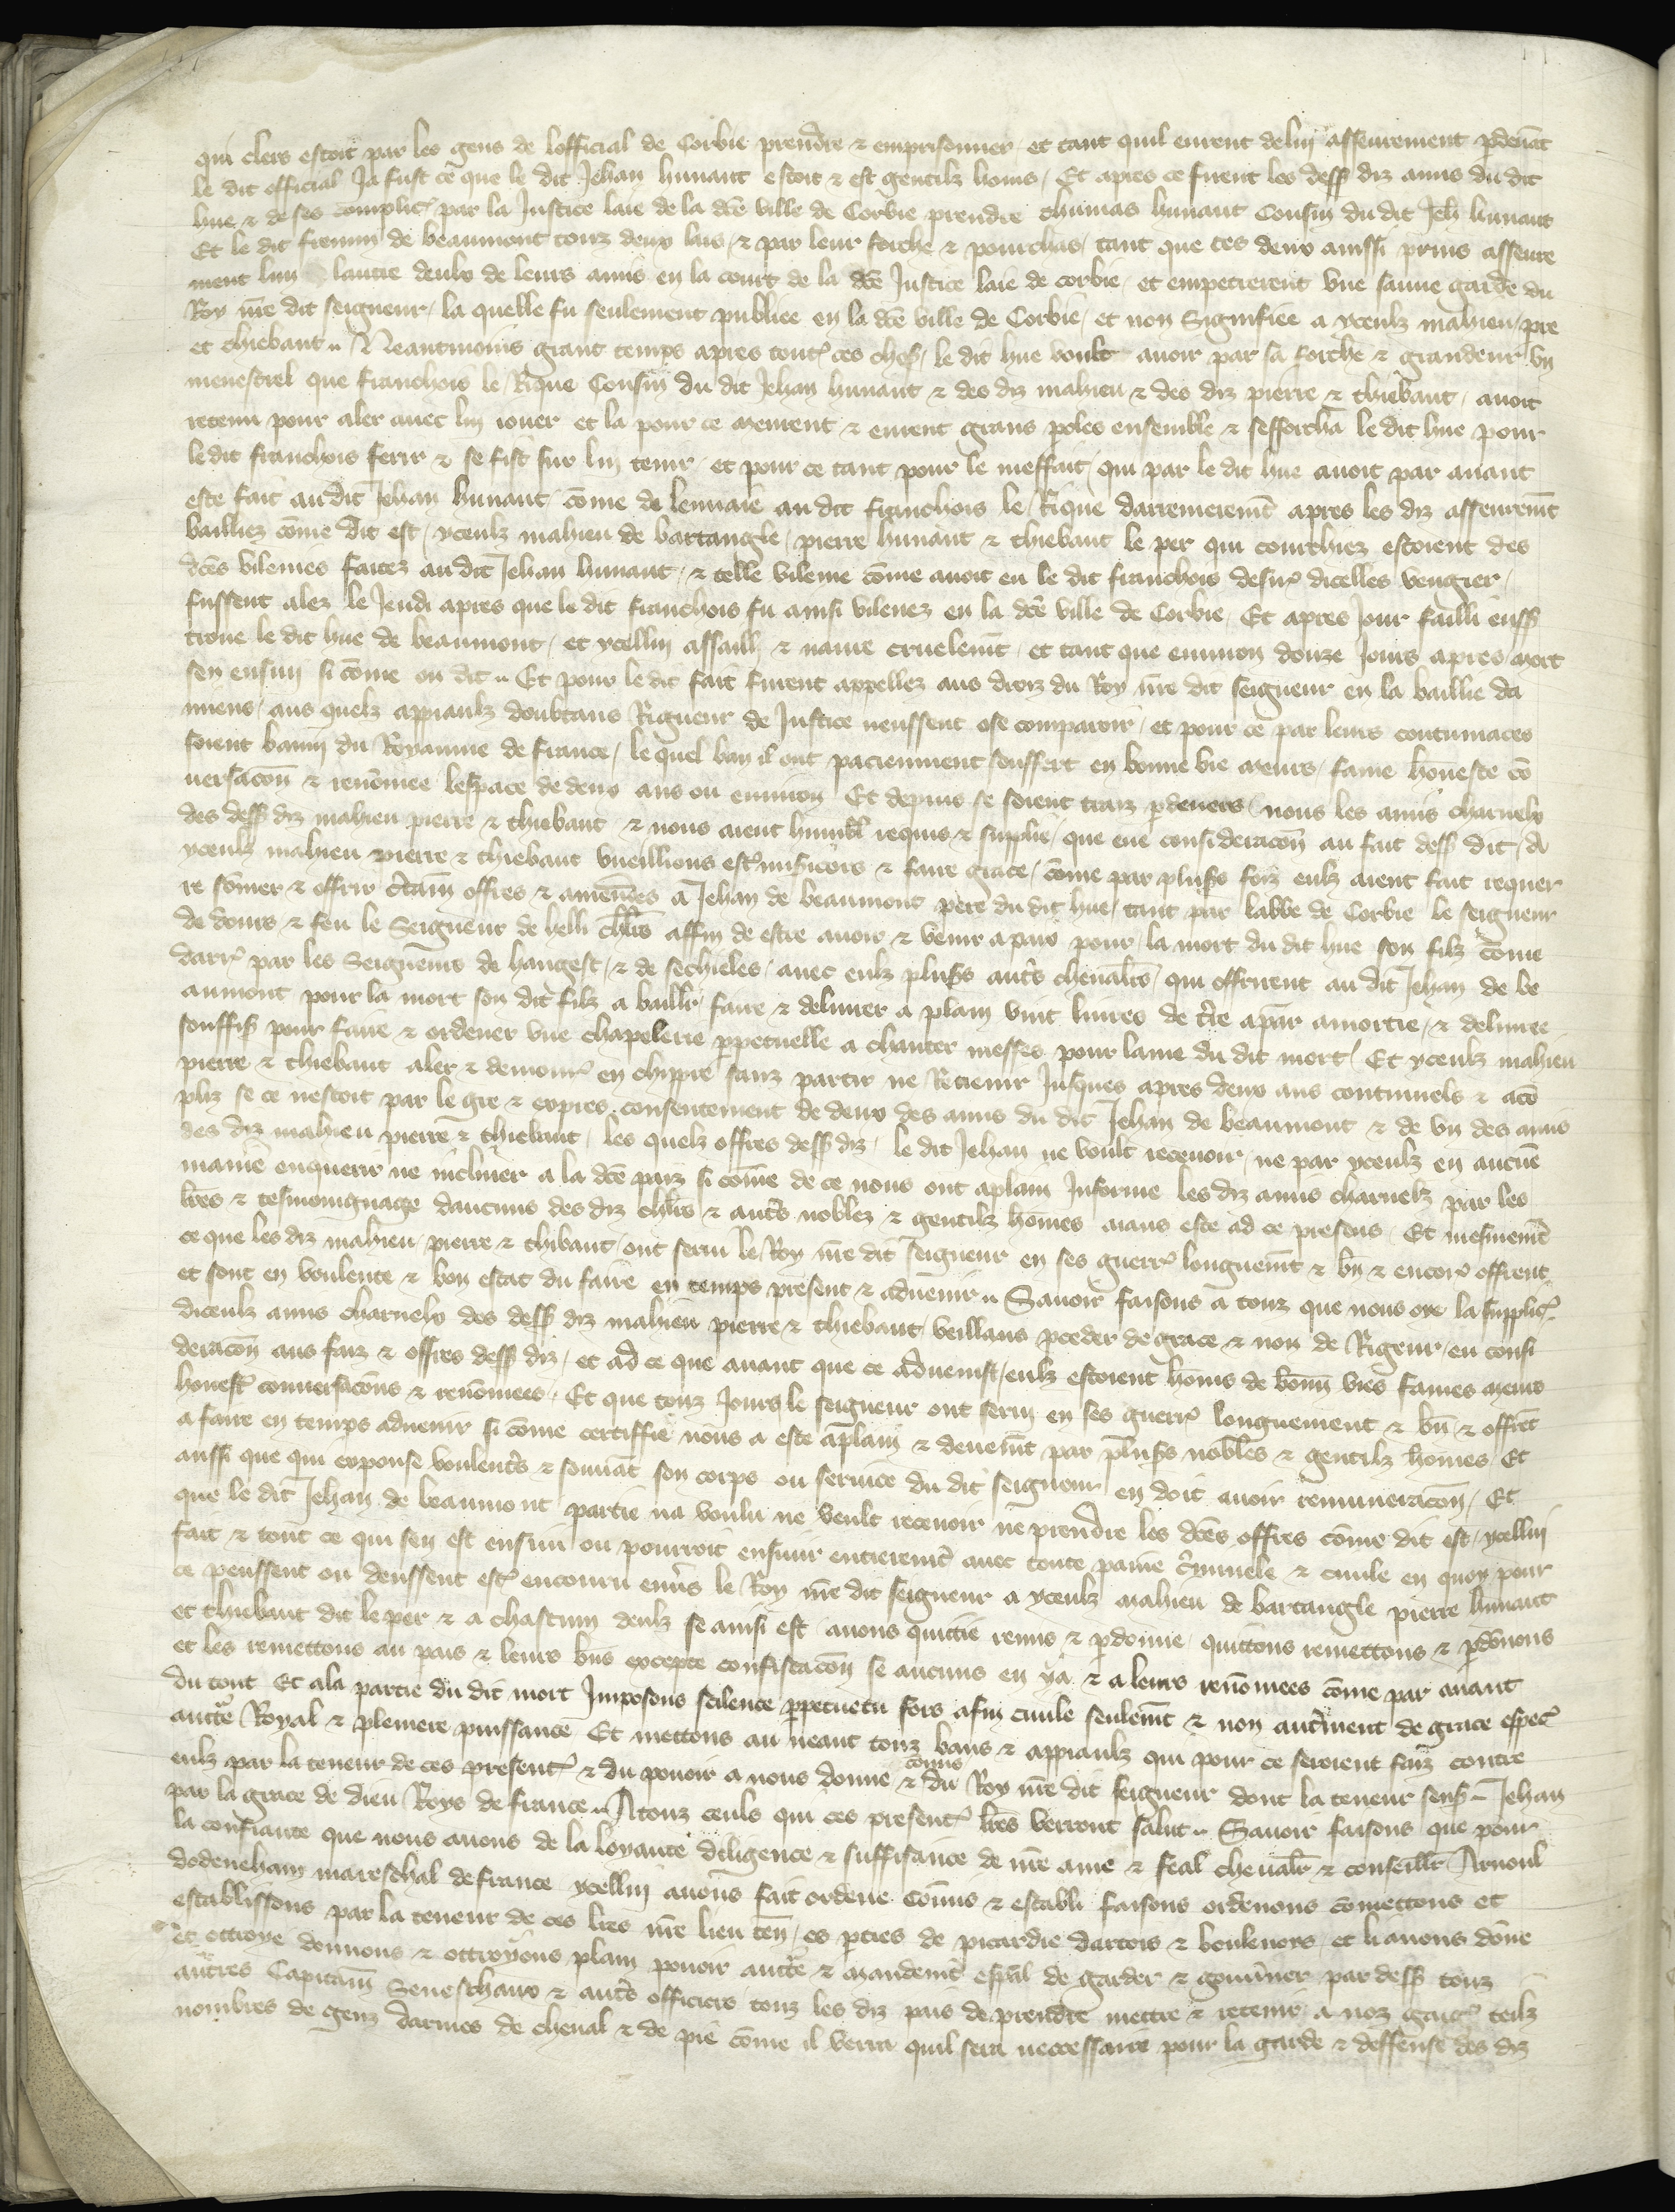 qui clers estoit par les gens de lofficial de Corbie prendre & emprisonner et tant quil eurent de lui asseurement pdevãt
le dit official Ja fust ce que le dit Jehan hunaut estoit & est gentilz homs / Et apres ce furent les dess diz amis du dit
hue & de ses complic̃ par la Justice laie de la dc̃e ville de Corbie prendre thumas hunaut Cousin du dit Jeh hunaut
Et le dit firmin de beaumont touz deux lais / & par leur force & pourchas / tant que ces deux aussi prins asseure
ment lun lautre deulx de leurs amis en la court de la dc̃e Justice laie de corbie / et empetrerent une sauve garde du
Roy nr̃e dit seigneur / la quelle fu seulement publiee en la dc̃e ville de Corbie / et non Signifiee a yceulz mahieu / pre
et thiebaut .. Neantmoins grant temps apres tout̃ ces chos̃ / le dit hue voult avoir par sa forche & grandeur un
menestrel que franchois le Rique Cousin du dit Jehan hunaut & des diz mahieu & des diz pierre & thiebaut / avoit
retenu pour aler avec lui jouer et la pour ce meurent & eurent grans poles ensemble & sefforcha le dit hue pour
le dit franchois ferir & se fist sur lui tenir / et pour ce tant pour le meffait / qui par le dit hue avoit par avant
este fait au dit Jehan hunaut / cõme de lenvaie au dit franchois le Rique darreneremt̃ apres les diz asseuremt̃
bailliez cõme dit est / yceulz mahieu de bartangle / pierre hunaut & thiebaut le per qui courchiez estoient des
dc̃es vilenies faitez au dit Jehan hunaut / & telle vilenie cõme avoit eu le dit franchois desir̃ dicelles vengier /
fussent alez le Jeudi apres que le dit franchois fu ainsi vilenez en la dc̃e ville de Corbie / Et apres Jour failli eus̃
trove le dit hue de beaumont / et ycellui assailli & navre cruelemt̃ / et tant que environ douze Jours apres mort
sen ensui si cõme on dit .. Et pour le dit fait furent appellez aus droiz du Roy nr̃e dit seigneur en la baillie da
miens / aus quelz appiaulz doubtans Rigueur de Justice neussent ose comparoir / et pour ce par leurs contumaces
soient banni du Royaume de france / le quel ban il ont paciemment souffert en bonne vie meurs / fame honneste cõ
versacõn & renõmee lespace de deux ans ou environ Et depuis se soient traiz pdevers nous les amis charnelx
des dess diz mahieu pierre & thiebaut & nous aient humblẽ requis & supplie / que eue consideracõn au fait dess dit / a
yceulz mahieu pierre & thiebaut vueillions est̃ misericors & faire grace / cõme par plus̃s foiz eulz aient fait requer
re sõmer & offrir c̃tain offres & amendes a Jehan de beaumont pere du dit hue / tant par labbe de Corbie le seigneur
de dours & feu le Seigneur de helli chl̃rs affin de estre avoir & venir a paix pour la mort du dit hue son filz cõme
darr̃ par les Seigneurs de hangest / & de sechieles / avec eulz plus̃s autr̃s chevalr̃s / qui offrirent au dit Jehan de be
aumont pour la mort son dit filz a baillr̃ / faire & delivrer a plain vint livres de tr̃e a par amortie / & delivree
souffis̃ pour faire & ordener une chapelerie ppetuelle a chanter messes pour lame du dit mort / Et yceulz mahieu
pierre & thiebaut aler & demour̃ en chippre sanz partir ne Retenir Jusques apres deux ans continuels & acõ
pliz se ce nestoit par le gre & expres consentement de deux des amis du dit Jehan de beaumont & de un des amis
des diz mahieu pierre & thiebaut / les quelz offres dess diz / le dit Jehan ne voult recevoir / ne par yceulz en aucũe
maniẽ enquerir ne incliner a la dc̃e paiz si cõme de ce nous ont aplain Informe les diz amis charnelz par les
lr̃es & tesmoingnage daucuns des diz chl̃rs & autr̃s noblez & gentilz hõmes aians este ad ce presens / Et mesmemt̃
ce que les diz mahieu / pierre & thibaut / ont servi le Roy nr̃e dit seigneur en ses guerr̃ longuemt̃ & bñ & encor̃ offrent
et sont en voulente & bon estat du faire en temps present & advenir .. Savoir faisons a touz que nous oye la supplic̃
diceulz amis charnelx des dess diz mahieu pierre & thiebaut / veillans pceder de grace & non de Rigeur / eu consi
deracõn aus faiz & offres dess diz / et ad ce que avant que ce advenist / eulz estoient hõms de bonn vies fames meurs
honest̃ conversacõns & renõmees / Et que touz Jours le seigneur ont servi en ses guerr̃ longuement & bñ & offrẽt
a faire en temps advenir si cõme certiffie nous a este aplain & deuemt̃ par plus̃s nobles & gentilz hõmes / Et
aussi que qui expouse voulentr̃s & souvãt son corps ou service du dit seigneur en doit avoir remuneracõn / Et
que le dit Jehan de beaumont partie na voulu ne veult recevoir ne prendre les dc̃es offres cõme dit est / ycellui
fait & tout ce qui sen est ensuiu ou pourroit ensuivr entieremt̃ avec toute paine c̃riminele & civile en quoy pour
ce peussent ou deussent est̃ encouru env̾s le Roy nr̃e dit seigneur a yceulz mahieu de bartangle pierre hunaut
et thiebaut dit le per & a chascun deulz se ainsi est avons quittie remis & pdonne / quittons remettons & pdõnons
et les remettons au pais & leurs bñs excepte confiscacõn se aucuns en ya & a leurs renõmees cõme par avant
du tout Et a la partie du dit mort Imposons scilence ppetuelu fors a fin civile seulemt̃ & non autr̃ment de grace especl̃
auctẽ Royal & pleniere puissance Et mettons au neant touz bans & appiaulz qui pour ce seroient faiz contre
eulz par la teneur de ces present̃ & du povoir a nous donne & cõmis du Roy nr̃e dit seigneur dont la teneur sens̃ .. Jehan
par la grace de dieu Roys de france .. A touz ceuls qui ces present̃ lr̃es verront salut .. Savoir faisons que pour
la confiance que nous avons de la loyaute diligence & suffisance de nr̃e ame & feal chevalr̃ & conseillr̃ Arnoul
dodeneham mareschal de france ycellui avons fait ordene Cõmis & establi faisons ordenons cõmettons et
establissons par la teneur de ces lr̃es nr̃e lieu ten̄ / es pties de picardie dartois & boulenois / et li avons dõne
et ottroye donnons & ottroyons plain povoir auctẽ & mandemt̃ esp̃al de garder & gouvner par dess touz
autres Capitain̄ Seneschaux & autr̃s officiers touz les diz pais de prendre mettre & retenir a noz gaig̃ telz
nombres de genz darmes de cheval & de pie cõme il verra quil sera neccessaire pour la garde & deffense des diz